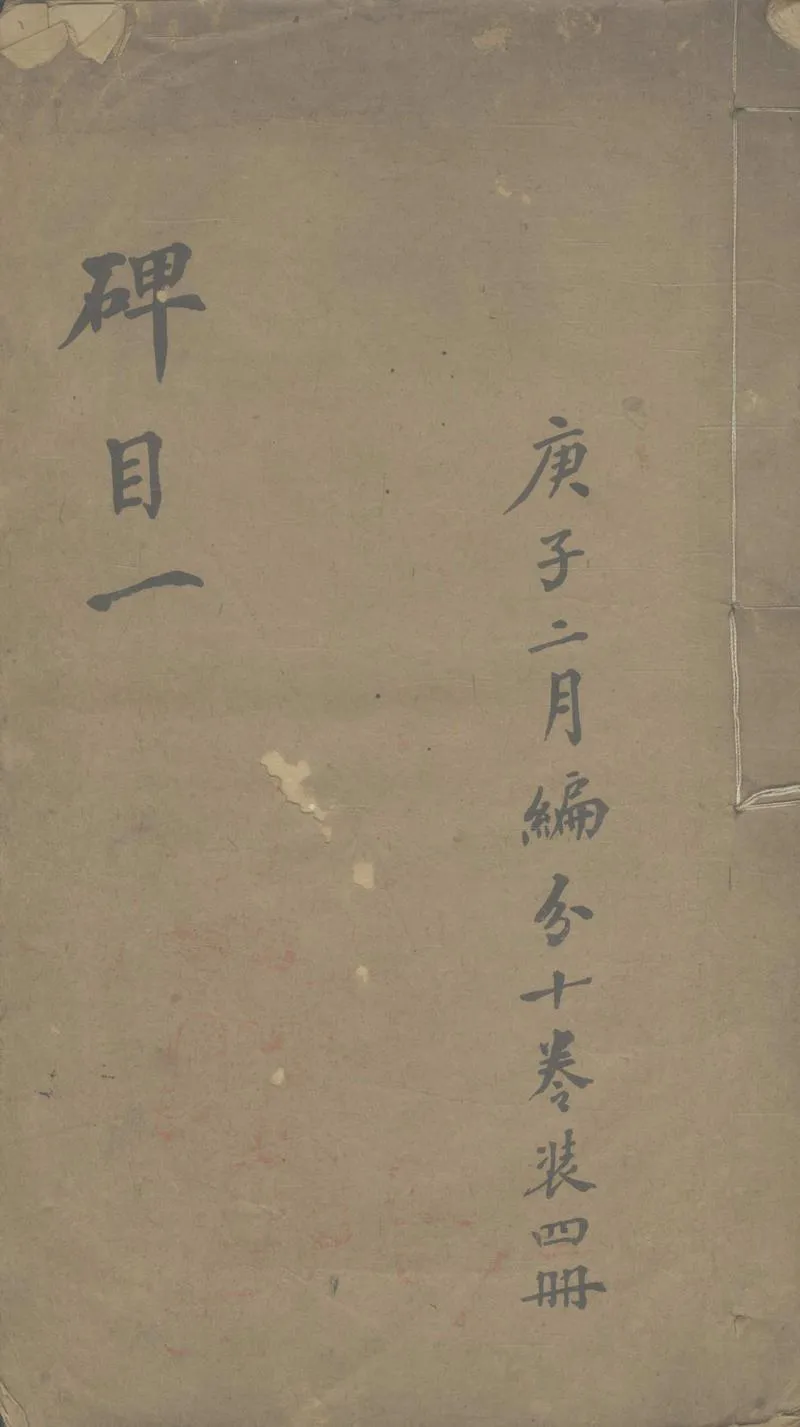 庚子二月編分十卷装四冊
碑目一